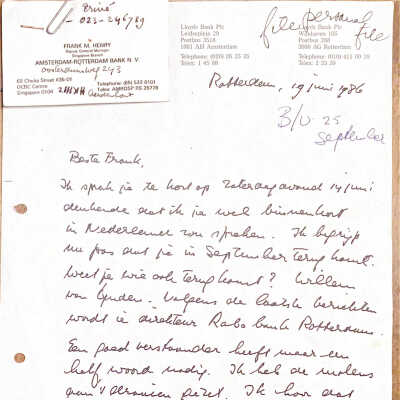 privé
023-246789
FRANK M. HENRY
Deputy General Manager
Singapore Branch
AMSTERDAM-ROTTERDAM BANK N.V.
Oosterduinweg 243
65 Chulia Street #36-01
OCBC Centre
Singapore 0104
Telephone: (65) 532 0101
Telex: AMROSP RS 26778
Aerdenhout
Lloyds Bank Plc
Leidseplein 29
Postbus 3518
1001 AH Amsterdam
Lloyds Bank Plc
Postbus
3000 AG Rotterdam
file personal
file
Rotterdam, 19 juni 1986
B/U 25
September
Beste Frank,
Ik sprak je te kort op zaterdagavond 14 juni
denkende dat ik je wel binnenkort
in Nederland zou spreken. Ik begrijp
nu pas dat je in September terug komt.
Weet je wie ook terug komt? Willem
van Lynden. Volgens de laatste berichten
wordt ie direkteur Rabo bank Rotterdam.
Een goed verstaander heeft maar een
half woord nodig. Ik heb de molens
aan 't draaien gezet. Ik hoor dat